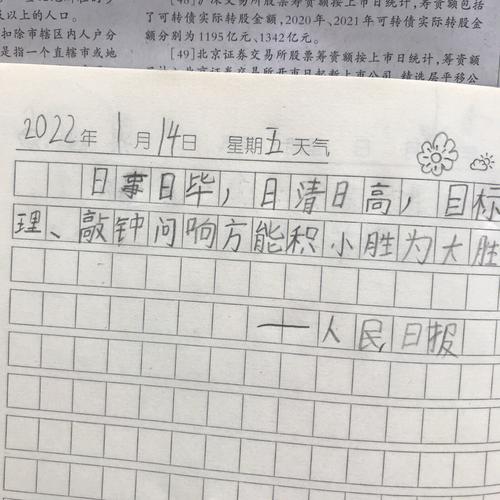 以上的人口。
扣除市辖区内人户分
是指一个直辖市或地
了可转债实际转股金额,2020年、2021年可转债实际转股金
额分别为1195亿元、1342亿元。
[49]北京证券交易所股票筹资额按上市日统计,筹资额
2022年1月14日 星期五 天气
日事日毕,日清日高,目标
理、敲钟问响方能积小胜为大胜
——人民日报